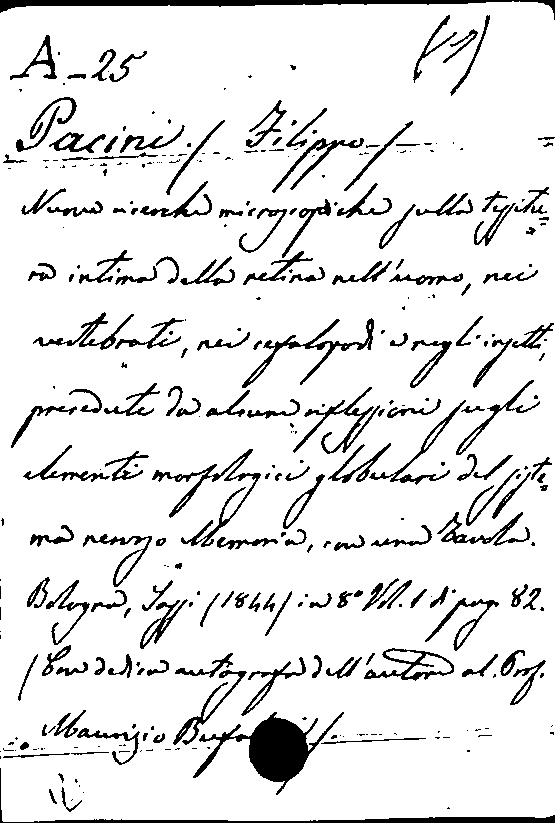 A-25 (17)
Pacini / Filippo /
Nuove ricerche microscopiche sulla tessitu=
ra intima della retina nell'uomo, nei
vertebrati, nei cefalopodi e negli insetti,
precedute da alcune riflessioni sugli
elementi morfologici globulari del siste=
ma nervoso Memoria, con una Tavola.
Bologna, Sassi (1844) in 8° Vol. 1 di pag. 82.
(Con dedica autografa dell'autore al Prof.
Maurizio